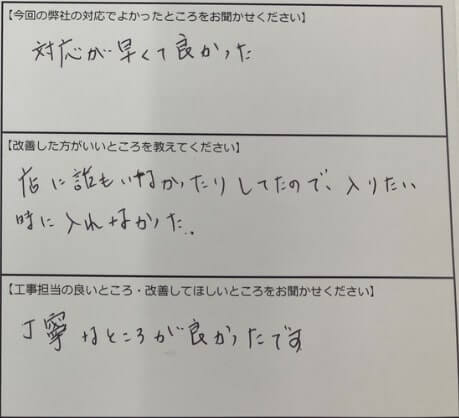 【今回の弊社の対応でよかったところをお聞かせください】
対応が早くて良かった
【改善した方がいいところを教えてください】
店に誰もいなかったりしてたので、入りたい
時に入れなかった..
【工事担当の良いところ・改善してほしいところをお聞かせください】
丁寧なところが良かったです